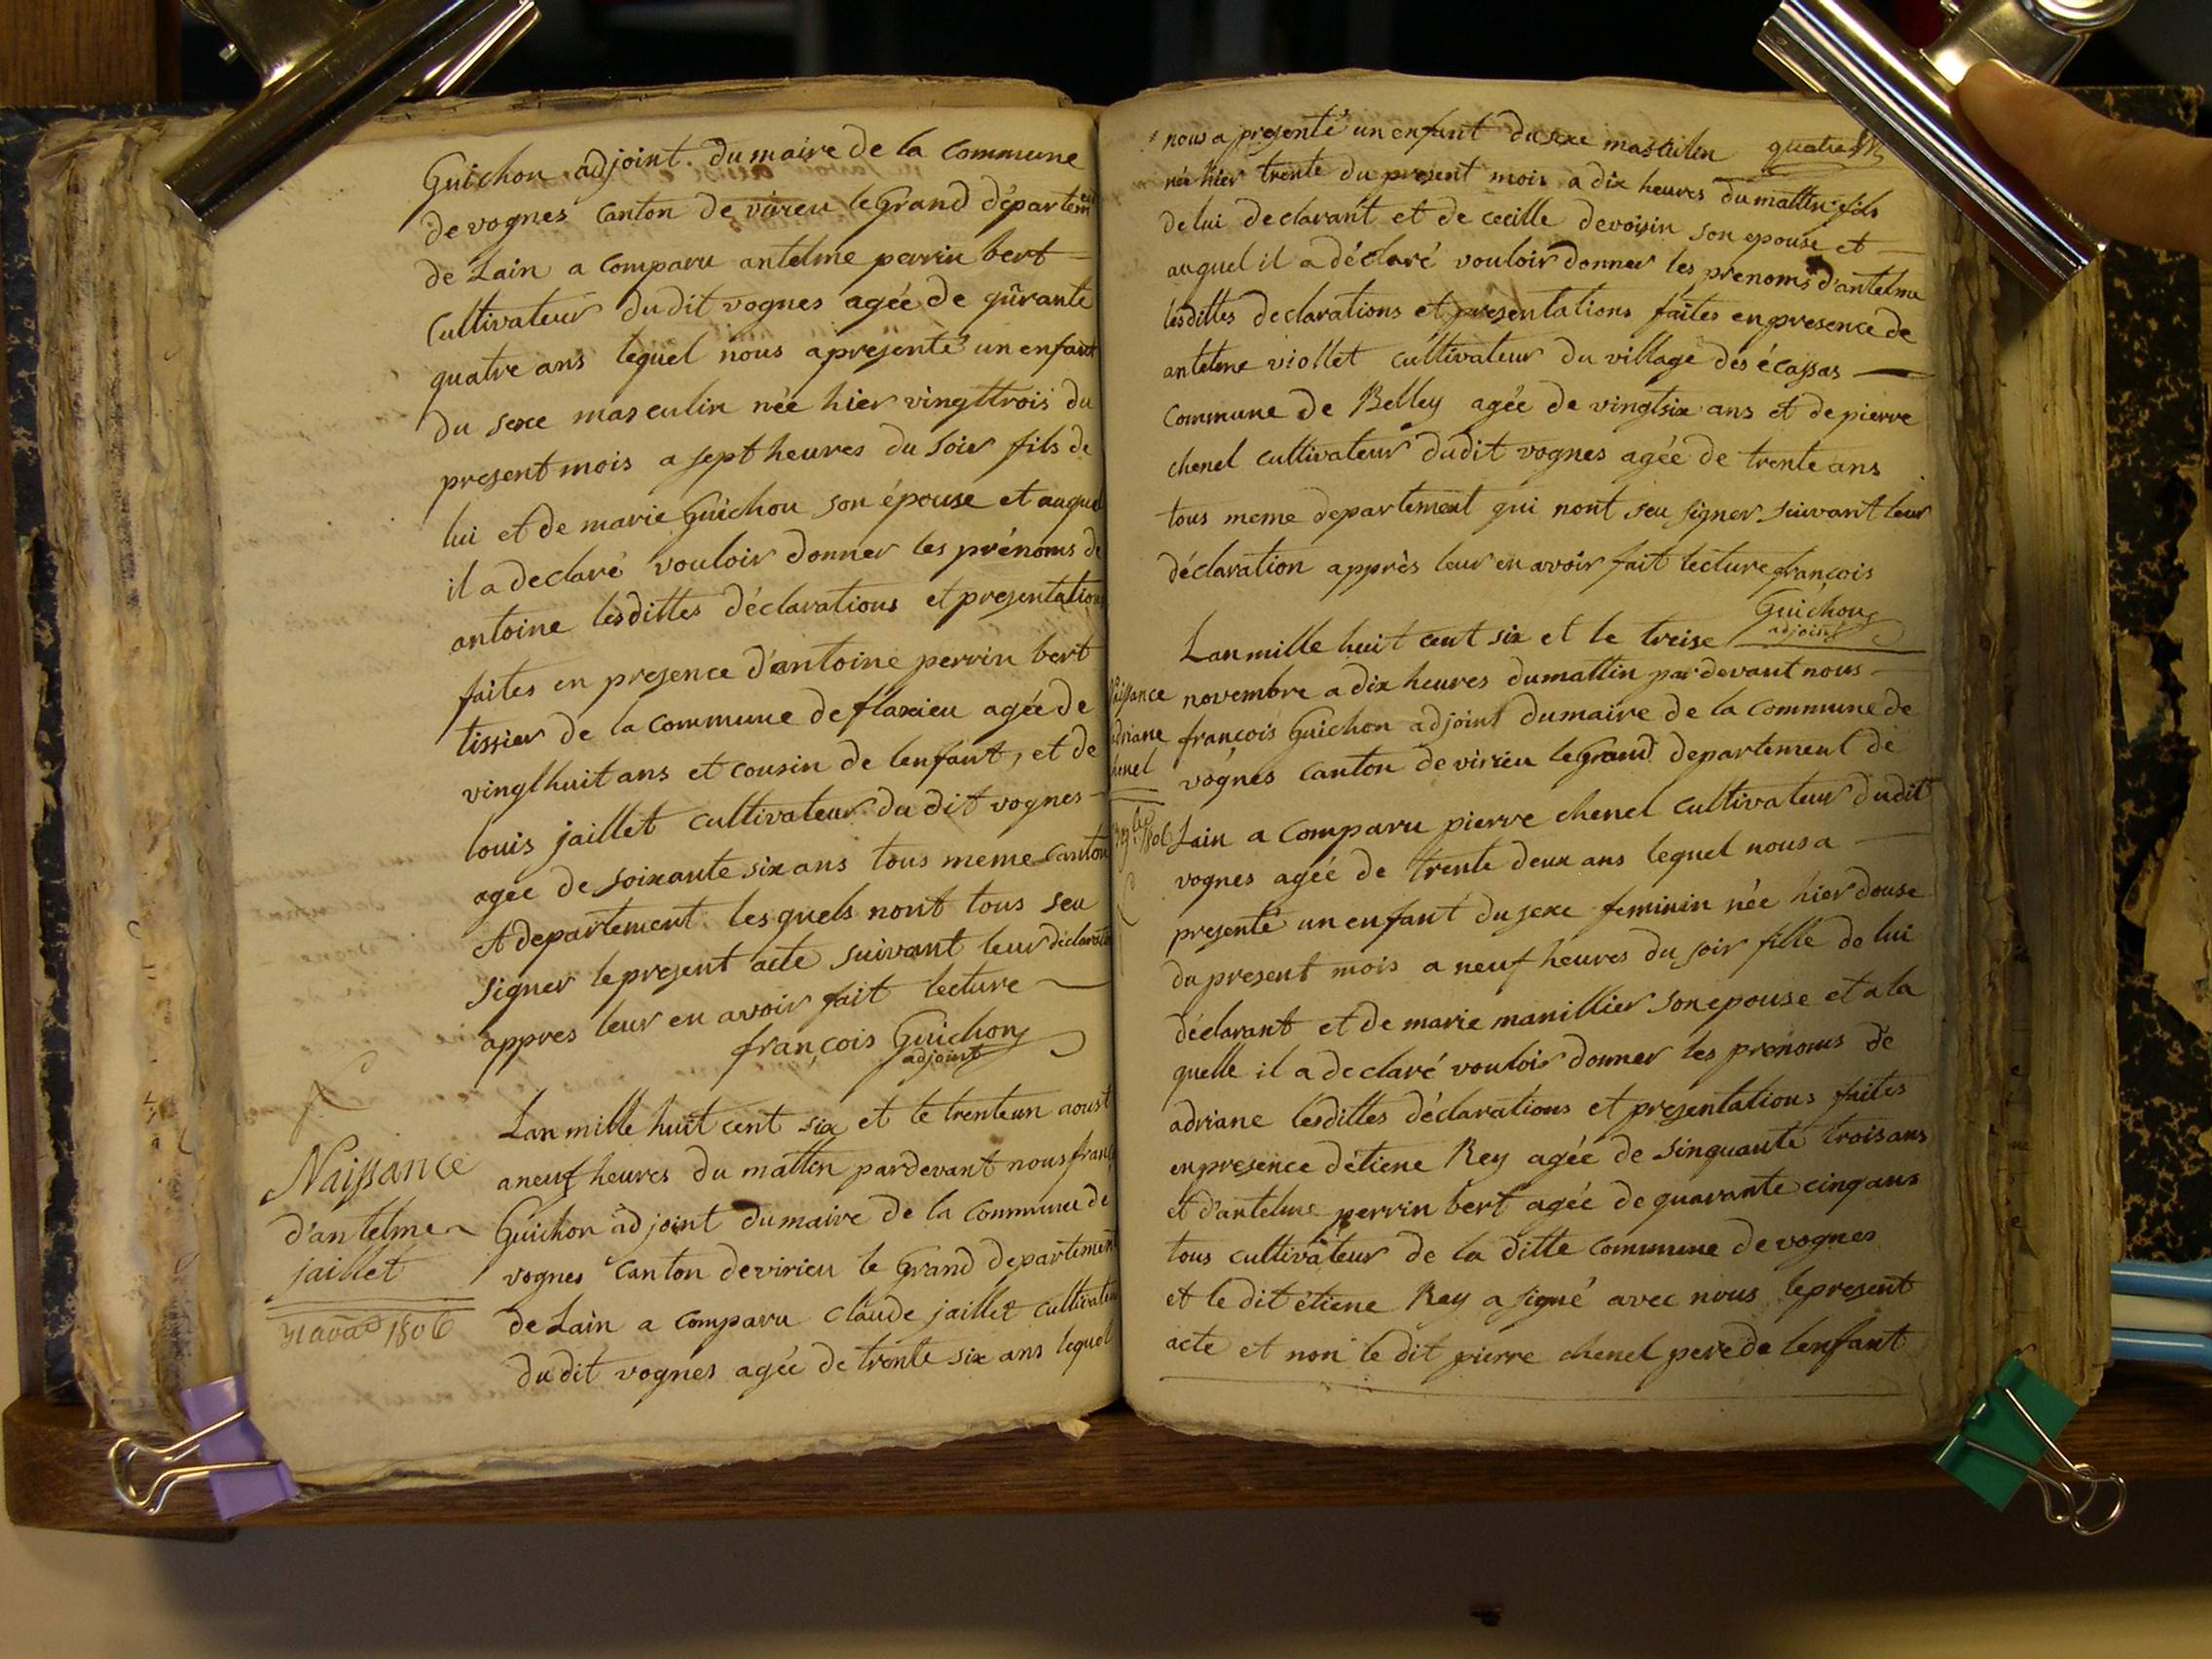 Guichon adjoint du maire de la commune
de vognes canton de virieu le Grand départem
de Lain a comparu antelme perrin bert
Cultivateur du dit vognes agée de qûrante
quatre ans lequel nous a presenté un enfant
du sexe masculin née hier vingttrois du
present mois a sept heures du soir fils de
lui et de marie Guichon son épouse et auquel
il a declaré vouloir donner les prénoms de
antoine lesdittes déclarations et presentations
faites en presence d'antoine perrin bert
tissier de la commune de flaxieu agée de
vingthuit ans et cousin de lenfant, et de
louis jaillet cultivateur du dit vognes
agée de soixante six ans tous meme canton
et departement lesquels nont tous seu
signer le present acte suivant leur déclarat
appres leur en avoir fait lecture
françois Guichon
adjoint
Naissance
d'antelme
jaillet
31 1806
Lan mille huit cent six et le trenteun aoust
a neuf heures du mattin pardevant nous franç
Guichon adjoint du maire de la commune de
vognes canton de virieu le Grand departement
de Lain a comparu claude jaillet cultivateur
du dit vognes agée de trente six ans lequel
quatre
nous a presenté un enfant du sexe masculin
née hier trente du present mois a dix heures du mattin fils
de lui declarant et de cecille devoisin son epouse et
auquel il a déclaré vouloir donner les prenoms d'antelme
lesdittes declarations et presentations faites en presence de
antelme viollet cultivateur du village des écassas
commune de Belley agée de vingtsix ans et de pierre
chenel cultivateur dudit vognes agée de trente ans
tous meme departement qui nont seu signer suivant leur
déclaration apprès leur en avoir fait lecture françois
Guichon
adjoint
Naissance
adriane
chenel
1806
Lan mille huit cent six et le treise
novembre a dix heures du mattin par devant nous
françois Guichon adjoint du maire de la commune de
vognes canton de virieu le Grand departement de
Lain a comparu pierre chenel cultivateur dudit
vognes agée de trente deux ans lequel nous a
presenté un enfant du sexe feminin née hier douse
du present mois a neuf heures du soir fille de lui
déclarant et de marie manillier son epouse et a la
quelle il a declaré vouloir donner les prénoms de
adriane lesdittes déclarations et presentations faites
en presence détiene Rey agée de sinquante trois ans
et d'antelme perrin bert agée de quarante cinq ans
tous cultivateur de la ditte commune de vognes
et le dit étiene Rey a signé avec nous le present
acte et non le dit pierre chenel pere de lenfant